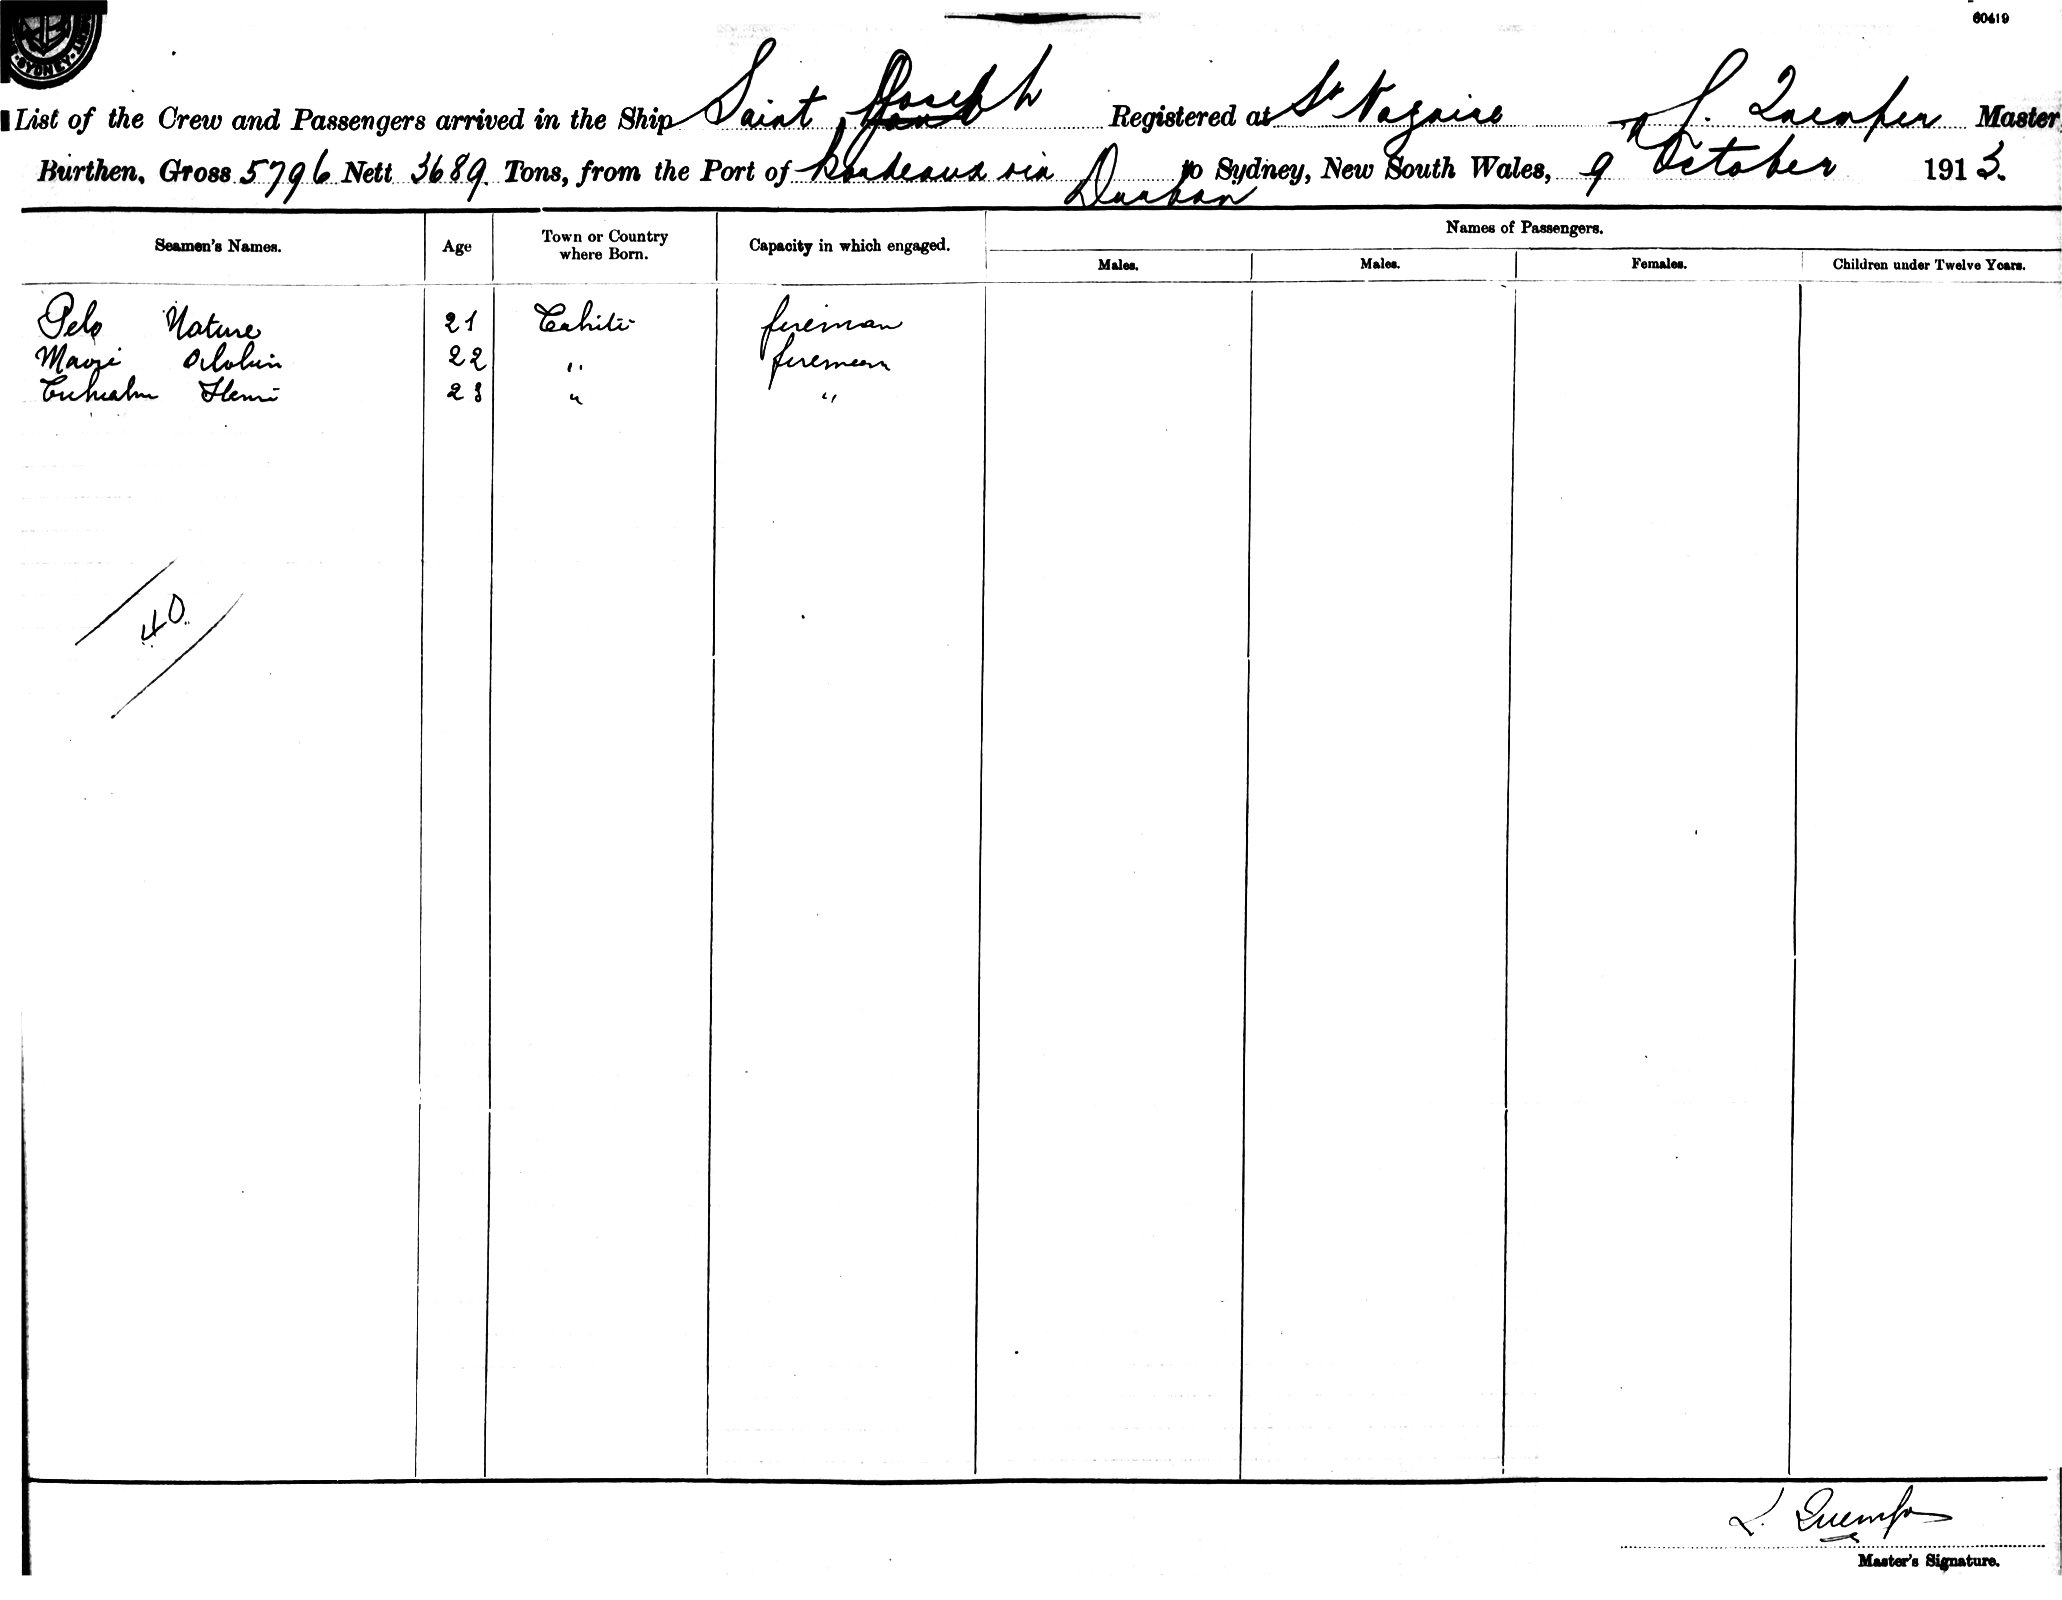 60419
SYDNEY
List of the Crew and Passengers arrived in the Ship Saint Joseph Registered at St Nazaire L. Quemper Master
Burthen, Gross 5796 Nett 3689 Tons, from the Port of Bordeaux via Durban to Sydney, New South Wales, 9 October 1913.
Seamen's Names. Age Town or Country where Born. Capacity in which engaged. Names of Passengers.
Males. Males. Females. Children under Twelve Years.
Pelo Nature 21 Tahiti fireman
Maori 22 " fireman
Henri 23 " "
40
L. Quemper
Master's Signature.